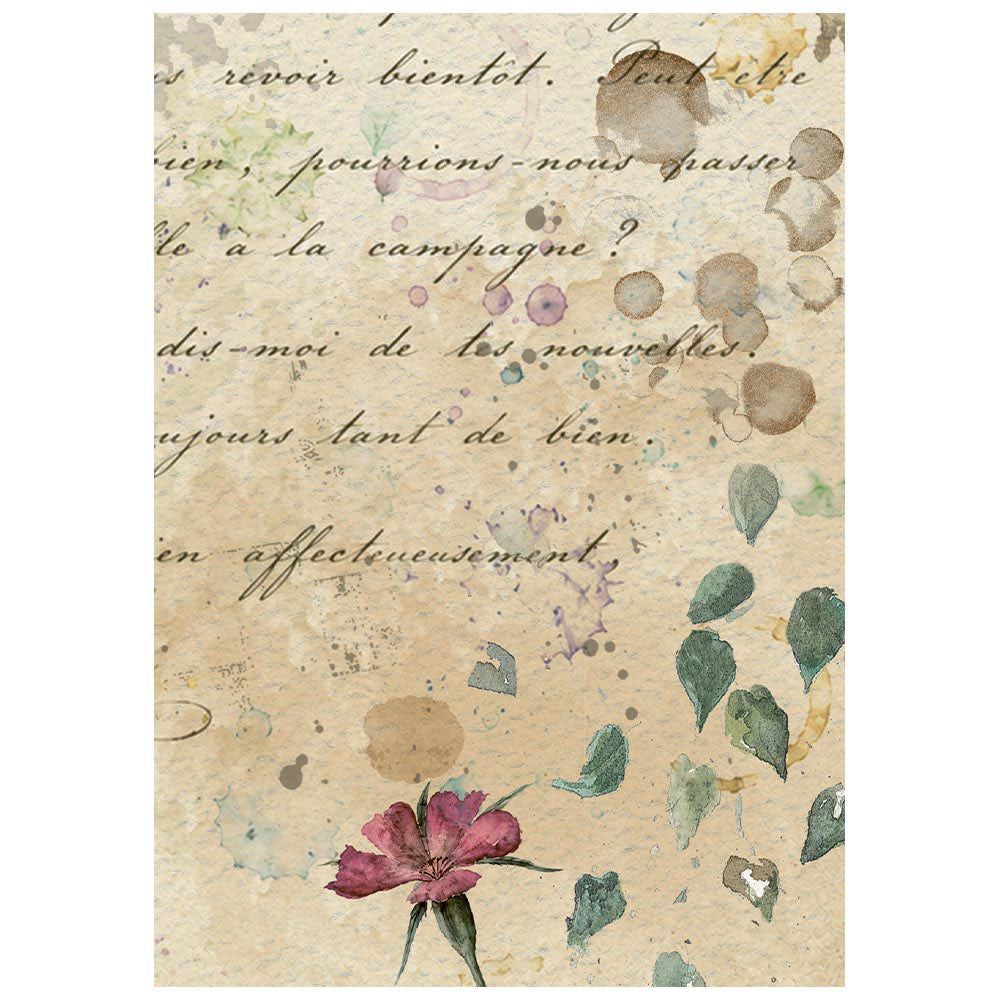 s revoir bientôt. Peut-etre
bien, pourrions-nous passer
le à la campagne?
dis-moi de tes nouvelles.
ujours tant de bien.
en affectueusement,